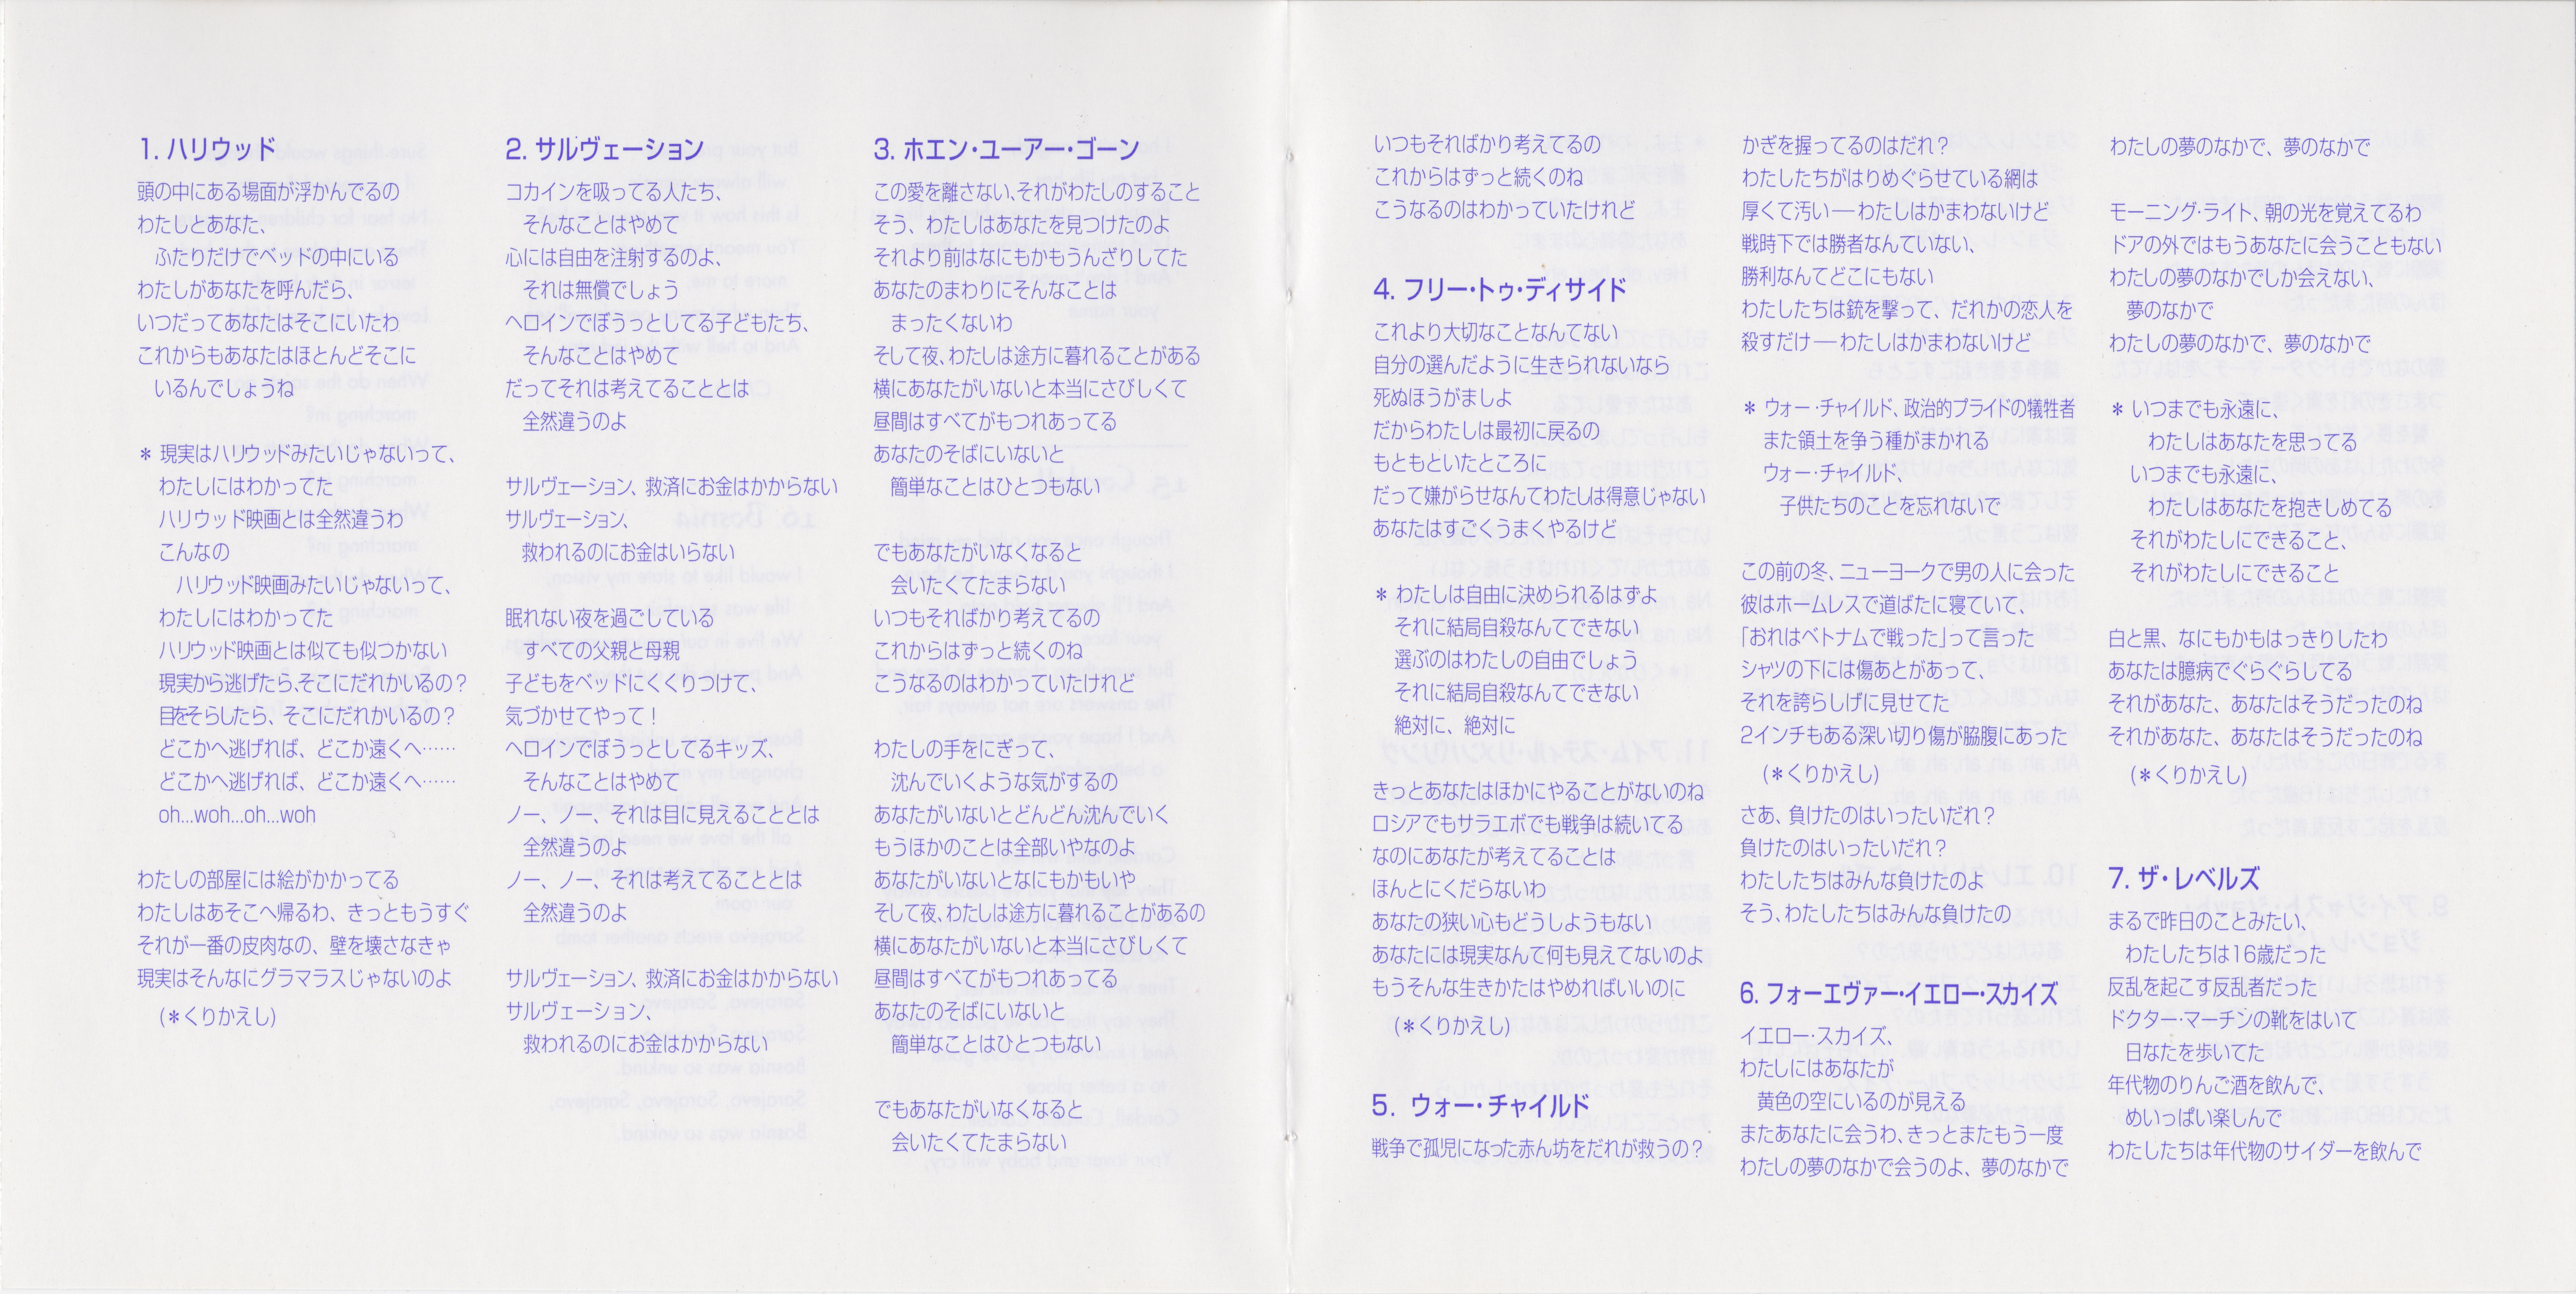 1. ハリウッド
頭の中にある場面が浮かんでるの
わたしとあなた、
ふたりだけでベッドの中にいる
わたしがあなたを呼んだら、
いつだってあなたはそこにいたわ
これからもあなたはほとんどそこに
いるんでしょうね
* 現実はハリウッドみたいじゃないって、
わたしにはわかってた
ハリウッド映画とは全然違うわ
こんなの
ハリウッド映画みたいじゃないって、
わたしにはわかってた
ハリウッド映画とは似ても似つかない
現実から逃げたら、そこにだれかいるの?
目をそらしたら、そこにだれかいるの?
どこかへ逃げれば、どこか遠くへ……
どこかへ逃げれば、どこか遠くへ……
oh...woh...oh...woh
わたしの部屋には絵がかかってる
わたしはあそこへ帰るわ、きっともうすぐ
それが一番の皮肉なの、壁を壊さなきゃ
現実はそんなにグラマラスじゃないのよ
(*くりかえし)
2. サルヴェーション
コカインを吸ってる人たち、
そんなことはやめて
心には自由を注射するのよ、
それは無償でしょう
ヘロインでぼうっとしてる子どもたち、
そんなことはやめて
だってそれは考えてることとは
全然違うのよ
サルヴェーション、救済にお金はかからない
サルヴェーション、
救われるのにお金はいらない
眠れない夜を過ごしている
すべての父親と母親
子どもをベッドにくくりつけて、
気づかせてやって!
ヘロインでぼうっとしてるキッズ、
そんなことはやめて
ノー、ノー、それは目に見えることとは
全然違うのよ
ノー、ノー、それは考えてることとは
全然違うのよ
サルヴェーション、救済にお金はかからない
サルヴェーション、
救われるのにお金はかからない
3. ホエン・ユーアー・ゴーン
この愛を離さない、それがわたしのすること
そう、わたしはあなたを見つけたのよ
それより前はなにもかもうんざりしてた
あなたのまわりにそんなことは
まったくないわ
そして夜、わたしは途方に暮れることがある
横にあなたがいないと本当にさびしくて
昼間はすべてがもつれあってる
あなたのそばにいないと
簡単なことはひとつもない
でもあなたがいなくなると
会いたくてたまらない
いつもそればかり考えてるの
これからはずっと続くのね
こうなるのはわかっていたけれど
わたしの手をにぎって、
沈んでいくような気がするの
あなたがいないとどんどん沈んでいく
もうほかのことは全部いやなのよ
あなたがいないとなにもかもいや
そして夜、わたしは途方に暮れることがあるの
横にあなたがいないと本当にさびしくて
昼間はすべてがもつれあってる
あなたのそばにいないと
簡単なことはひとつもない
でもあなたがいなくなると
会いたくてたまらない
いつもそればかり考えてるの
これからはずっと続くのね
こうなるのはわかっていたけれど
4. フリー・トゥ・ディサイド
これより大切なことなんてない
自分の選んだように生きられないなら
死ぬほうがましよ
だからわたしは最初に戻るの
もともといたところに
だって嫌がらせなんてわたしは得意じゃない
あなたはすごくうまくやるけど
* わたしは自由に決められるはずよ
それに結局自殺なんてできない
選ぶのはわたしの自由でしょう
それに結局自殺なんてできない
絶対に、絶対に
きっとあなたはほかにやることがないのね
ロシアでもサラエボでも戦争は続いてる
なのにあなたが考えてることは
ほんとにくだらないわ
あなたの狭い心もどうしようもない
あなたには現実なんて何も見えてないのよ
もうそんな生きかたはやめればいいのに
(*くりかえし)
5. ウォー・チャイルド
戦争で孤児になった赤ん坊をだれが救うの?
かぎを握ってるのはだれ?
わたしたちがはりめぐらせている網は
厚くて汚い―わたしはかまわないけど
戦時下では勝者なんていない、
勝利なんてどこにもない
わたしたちは銃を撃って、だれかの恋人を
殺すだけ―わたしはかまわないけど
* ウォー・チャイルド、政治的プライドの犠牲者
また領土を争う種がまかれる
ウォー・チャイルド、
子供たちのことを忘れないで
この前の冬、ニューヨークで男の人に会った
彼はホームレスで道ばたに寝ていて、
「おれはベトナムで戦った」って言った
シャツの下には傷あとがあって、
それを誇らしげに見せてた
2インチもある深い切り傷が脇腹にあった
(*くりかえし)
さあ、負けたのはいったいだれ?
負けたのはいったいだれ?
わたしたちはみんな負けたのよ
そう、わたしたちはみんな負けたの
6. フォーエヴァー・イエロー・スカイズ
イエロー・スカイズ、
わたしにはあなたが
黄色の空にいるのが見える
またあなたに会うわ、きっとまたもう一度
わたしの夢のなかで会うのよ、夢のなかで
わたしの夢のなかで、夢のなかで
モーニング・ライト、朝の光を覚えてるわ
ドアの外ではもうあなたに会うこともない
わたしの夢のなかでしか会えない、
夢のなかで
わたしの夢のなかで、夢のなかで
* いつまでも永遠に、
わたしはあなたを思ってる
いつまでも永遠に、
わたしはあなたを抱きしめてる
それがわたしにできること、
それがわたしにできること
白と黒、なにもかもはっきりしたわ
あなたは臆病でぐらぐらしてる
それがあなた、あなたはそうだったのね
それがあなた、あなたはそうだったのね
(*くりかえし)
7. ザ・レベルズ
まるで昨日のことみたい、
わたしたちは16歳だった
反乱を起こす反乱者だった
ドクター・マーチンの靴をはいて
日なたを歩いてた
年代物のりんご酒を飲んで、
めいっぱい楽しんで
わたしたちは年代物のサイダーを飲んで